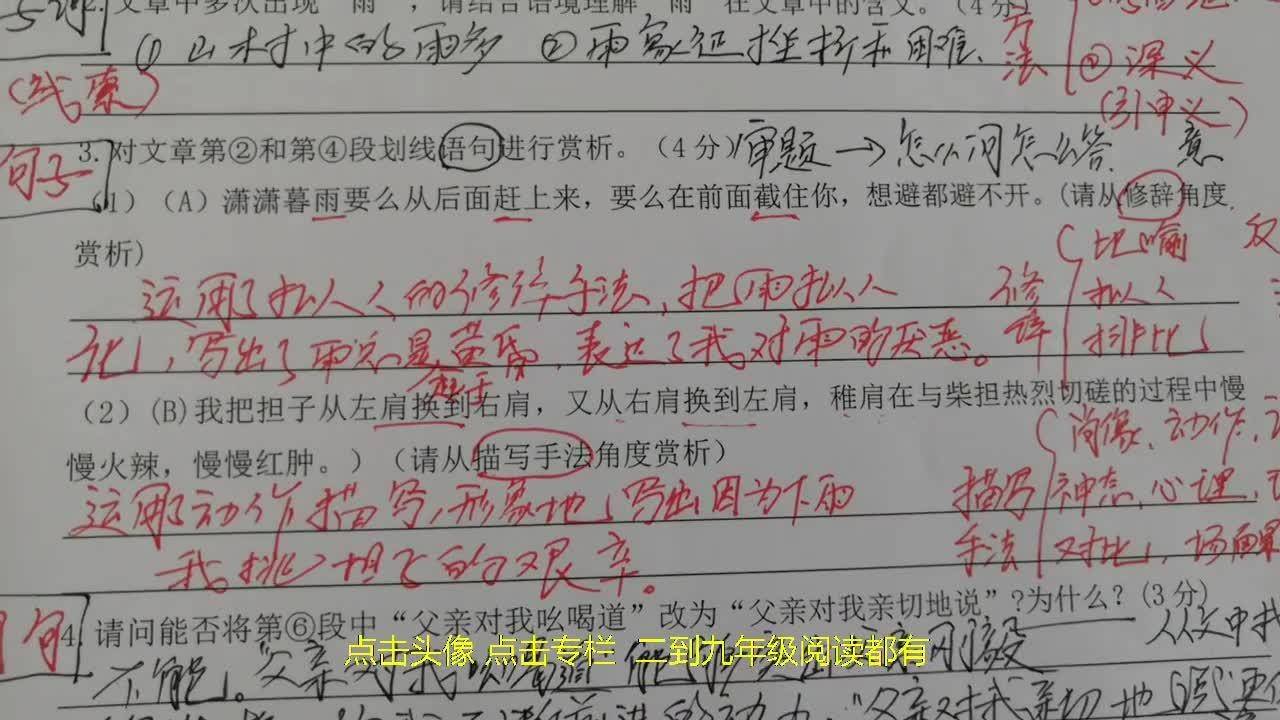 2. 文章中多次出现“雨”，请结合语境理解“雨”在文章中的含义。（4分）
① 山村中的雨多 ② 雨象征挫折和困难.
方法
② 深义
（引申义）
（线索）
句子
3. 对文章第②和第④段划线语句进行赏析。（4分）
审题→怎么问怎么答.
（1）（A）潇潇暮雨要么从后面赶上来，要么在前面截住你，想避都避不开。(请从修辞角度
赏析)
运用了拟人的修辞手法，把雨拟人
化，写出了雨总是黄昏，表达了我对雨的厌恶。
修辞
比喻
拟人
排比
（2）(B)我把担子从左肩换到右肩，又从右肩换到左肩，稚肩在与柴担热烈切磋的过程中慢
慢火辣，慢慢红肿。）（请从描写手法角度赏析）
运用了动作描写，形象地写出因为下雨
我挑担子的艰辛。
描写手法
肖像、动作、
神态，心理，
对比，场面
句
4. 请问能否将第⑥段中“父亲对我吆喝道”改为“父亲对我亲切地说”?为什么？(3分)
点击头像 点击专栏 二到九年级阅读都有
不能。“父亲对我吆喝道”能
刚毅
“父亲对我亲切地